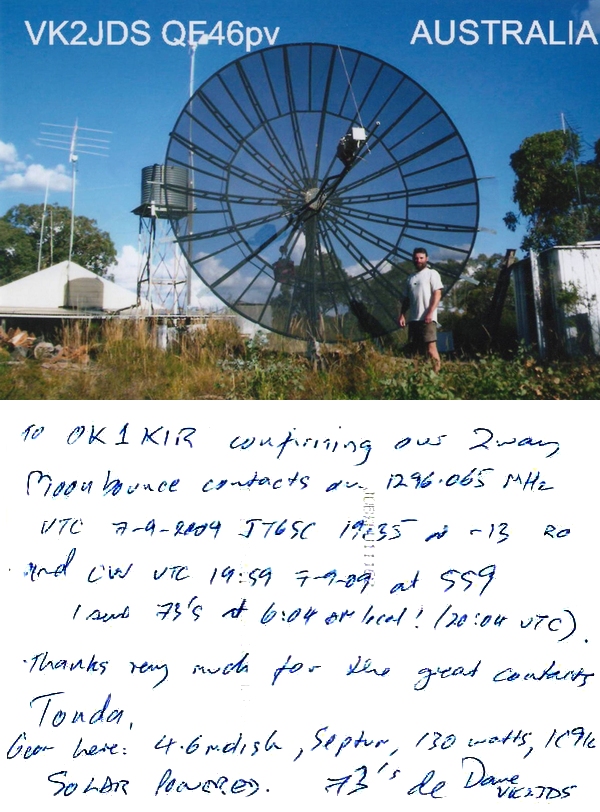 VK2JDS QF46pv AUSTRALIA
TO OK1KIR confirming our 2way
Moonbounce contacts on 1296.065 MHz
UTC 7-9-2009 JT65C 19:35 at -13 RO
and CW UTC 19:59 7-9-09 at 559
I said 73's at 6:04 am local! (20:04 UTC).
Thanks very much for the great contacts
Tonda,
Gear here: 4.6m dish, Septum, 130 watts,
SOLAR POWERED. 73's de Dave
VK2JDS